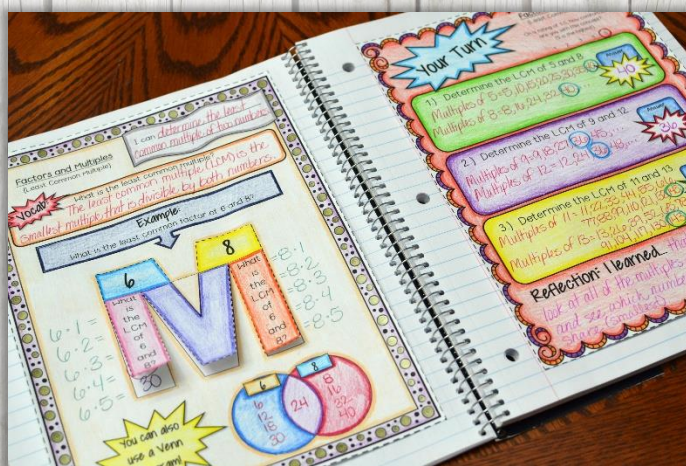 Factors and Multiples
(Least Common Multiple)
I can determine the least
common multiple of two numbers.
Vocab:
What is the least common multiple?
The least common multiple (LCM) is the
smallest multiple that is divisible by both numbers.
Example:
What is the least common factor of 6 and 8?
6
8
What
is
the
LCM
of
6
and
8?
30
What
is
the
LCM
of
6
and
8?
6·1=
6·2=
6·3=
6·4=
6·5=
=8·1
=8·2
=8·3
=8·4
=8·5
6
8
6
12
18
30
24
8
16
32
40
You can also
use a Venn
Your Turn
1.) Determine the LCM of 5 and 8
Multiples of 5=5,10,15,20,25,30,35,
Multiples of 8=8,16,24,32,
Answer
40
2.) Determine the LCM of 9 and 12.
Multiples of 9=9,18,27,36,45,...
Multiples of 12=12,24,36,48,...
Answer
36
3.) Determine the LCM of 11 and 13
Multiples of 11=11,22,33,44,55,
Multiples of 13=13,26,39,52,
Reflection: I learned...
look at all of the multiples
and see which number